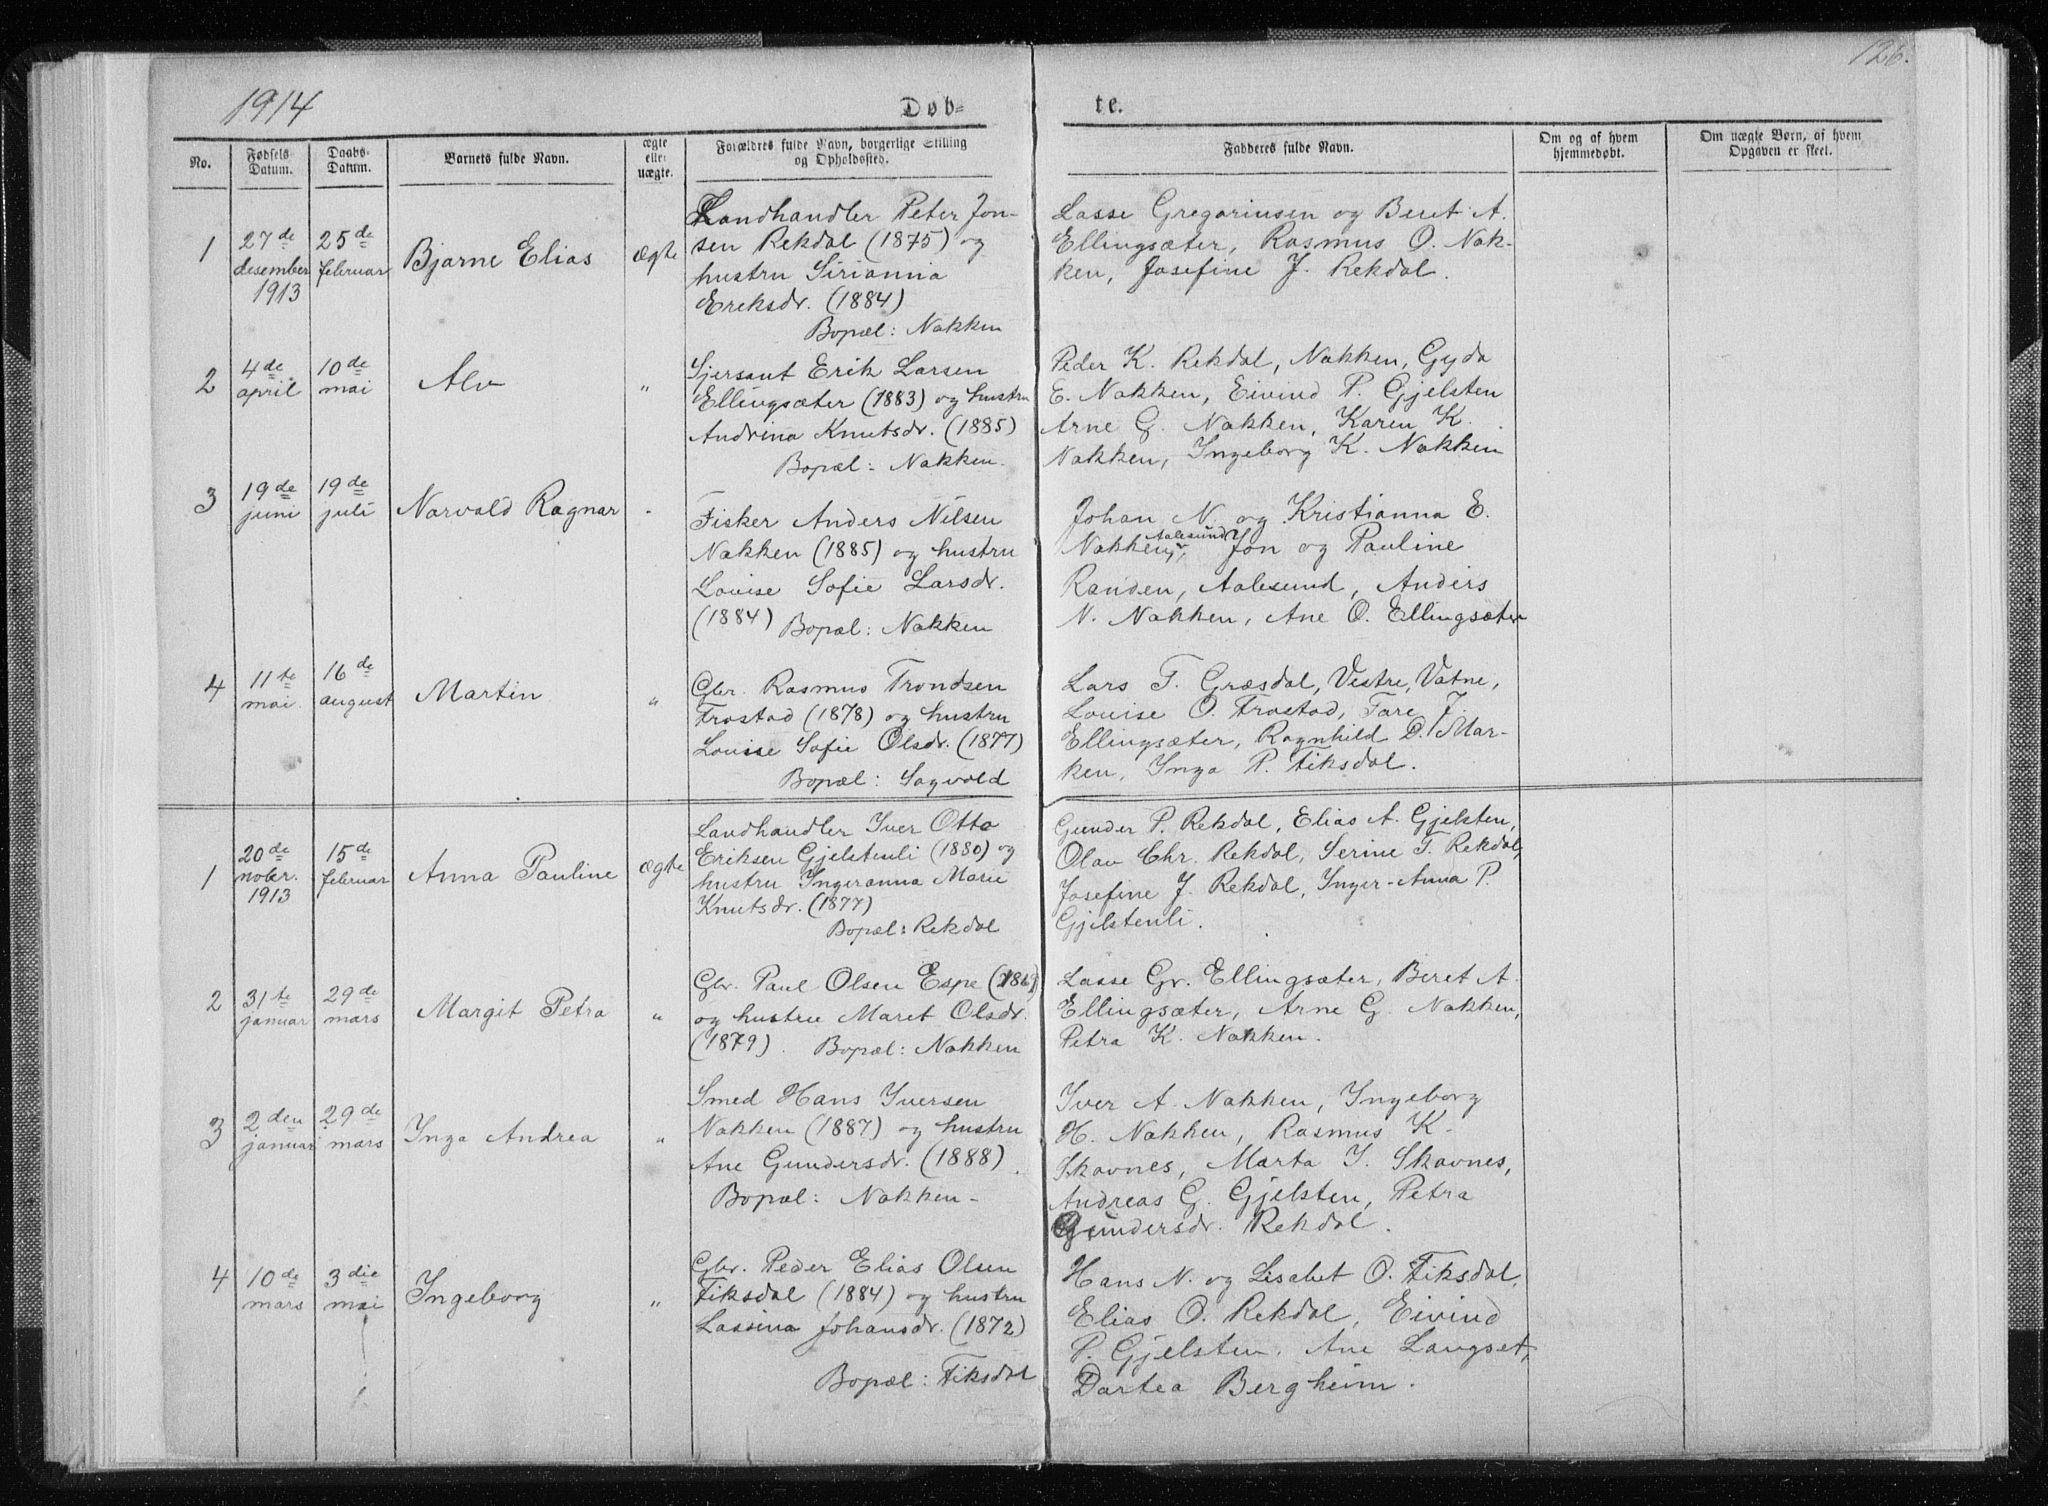 126.
1914
Døb-
te.
No.
Fødsels
Datum.
Daabs-
Datum.
Barnets fulde Navn.
ægte
eller
uægte.
Forældres fulde Navn, borgerlige Stilling
og Opholdssted.
Fadderes fulde Navn.
Om og af hvem
hjemmedøbt.
Om uægte Børn, af hvem
Opgaven er skeet.
1
27de
desember
1913
25de
februar
Bjarne Elias
ægte
Landhandler Peter Jon-
sen Rekdal (1875) og
hustru Sirianna
Ereksdr. (1884)
Bopæl: Nakken
Lasse Gregoriusen og Beret A.
Ellingsæter, Rasmus O. Nak-
ken, Josefine J. Rekdal.
2
4de
april
10de
mai
Alv
"
Sjersant Erik Larsen
Ellingsæter (1883) og hustru
Andrina Knutsdr. (1885)
Bopæl: Nakken.
Peder K. Rekdal, Nakken, Gyda
E. Nakken, Eivind P. Gjelsten
Arne G. Nakken, Karen K.
Nakken, Ingeborg K. Nakken
3
19de
juni
19de
juli
Norvald Ragnar
"
Fisker Anders Nilsen
Nakken (1885) og hustru
Louise Sofie Larsdr.
(1884) Bopæl: Nakken
Johan N. og Kristianna E.
Nakken, Aalesund, Jon og Pauline
Randen, Aalesund, Anders
N. Nakken, Ane O. Ellingsæter
4
11te
mai
16de
august
Martin
"
Gbr. Rasmus Trondsen
Frostad (1878) og hustru
Louise Sofie Olsdr. (1877)
Bopæl: Sagvold
Lars T. Græsdal, Vestre, Vatne,
Louise O. Frostad, Tore J.
Ellingsæter, Ragnhild D. Mar-
ken, Inga P. Fiksdal.
1
20de
nobr.
1913
15de
februar
Anna Pauline
ægte
Landhandler Iver Otto
Eriksen Gjelstenli (1880) og
hustru Ingeranna Marie
Knutsdr. (1877)
Bopæl: Rekdal
Gunder P. Rekdal, Elias A. Gjelsten,
Olav Chr. Rekdal, Serine T. Rekdal,
Josefine J. Rekdal, Inger-Anna P.
Gjelstenli.
2
31te
januar
29de
mars
Margit Petra
"
Gbr. Paul Olsen Espe
og hustru Maret Olsdr.
(1879). Bopæl: Nakken
Lasse Gr. Ellingsæter, Beret A.
Ellingsæter, Arne G. Nakken,
Petra K. Nakken.
3
2den
januar
29de
mars
Inga Andrea
"
Smed Hans Iversen
Nakken (1887) og hustru
Ane Gundersdr. (1888).
Bopæl: Nakken-
Iver A. Nakken, Ingeborg
H. Nakken, Rasmus K.
Skavnes, Marta I. Skavnes,
Andreas G. Gjelsten, Petra
Gundersdr. Rekdal.
4
10de
mars
3die
mai
Ingeborg
"
Gbr. Peder Elias Olsen
Fiksdal (1884) og hustru
Lassina Johansdr. (1872)
Bopæl: Fiksdal
Hans N. og Lisabet O. Fiksdal,
Elias O. Rekdal, Eivind
P. Gjelsten. Ane Langset,
Dortea Bergheim.